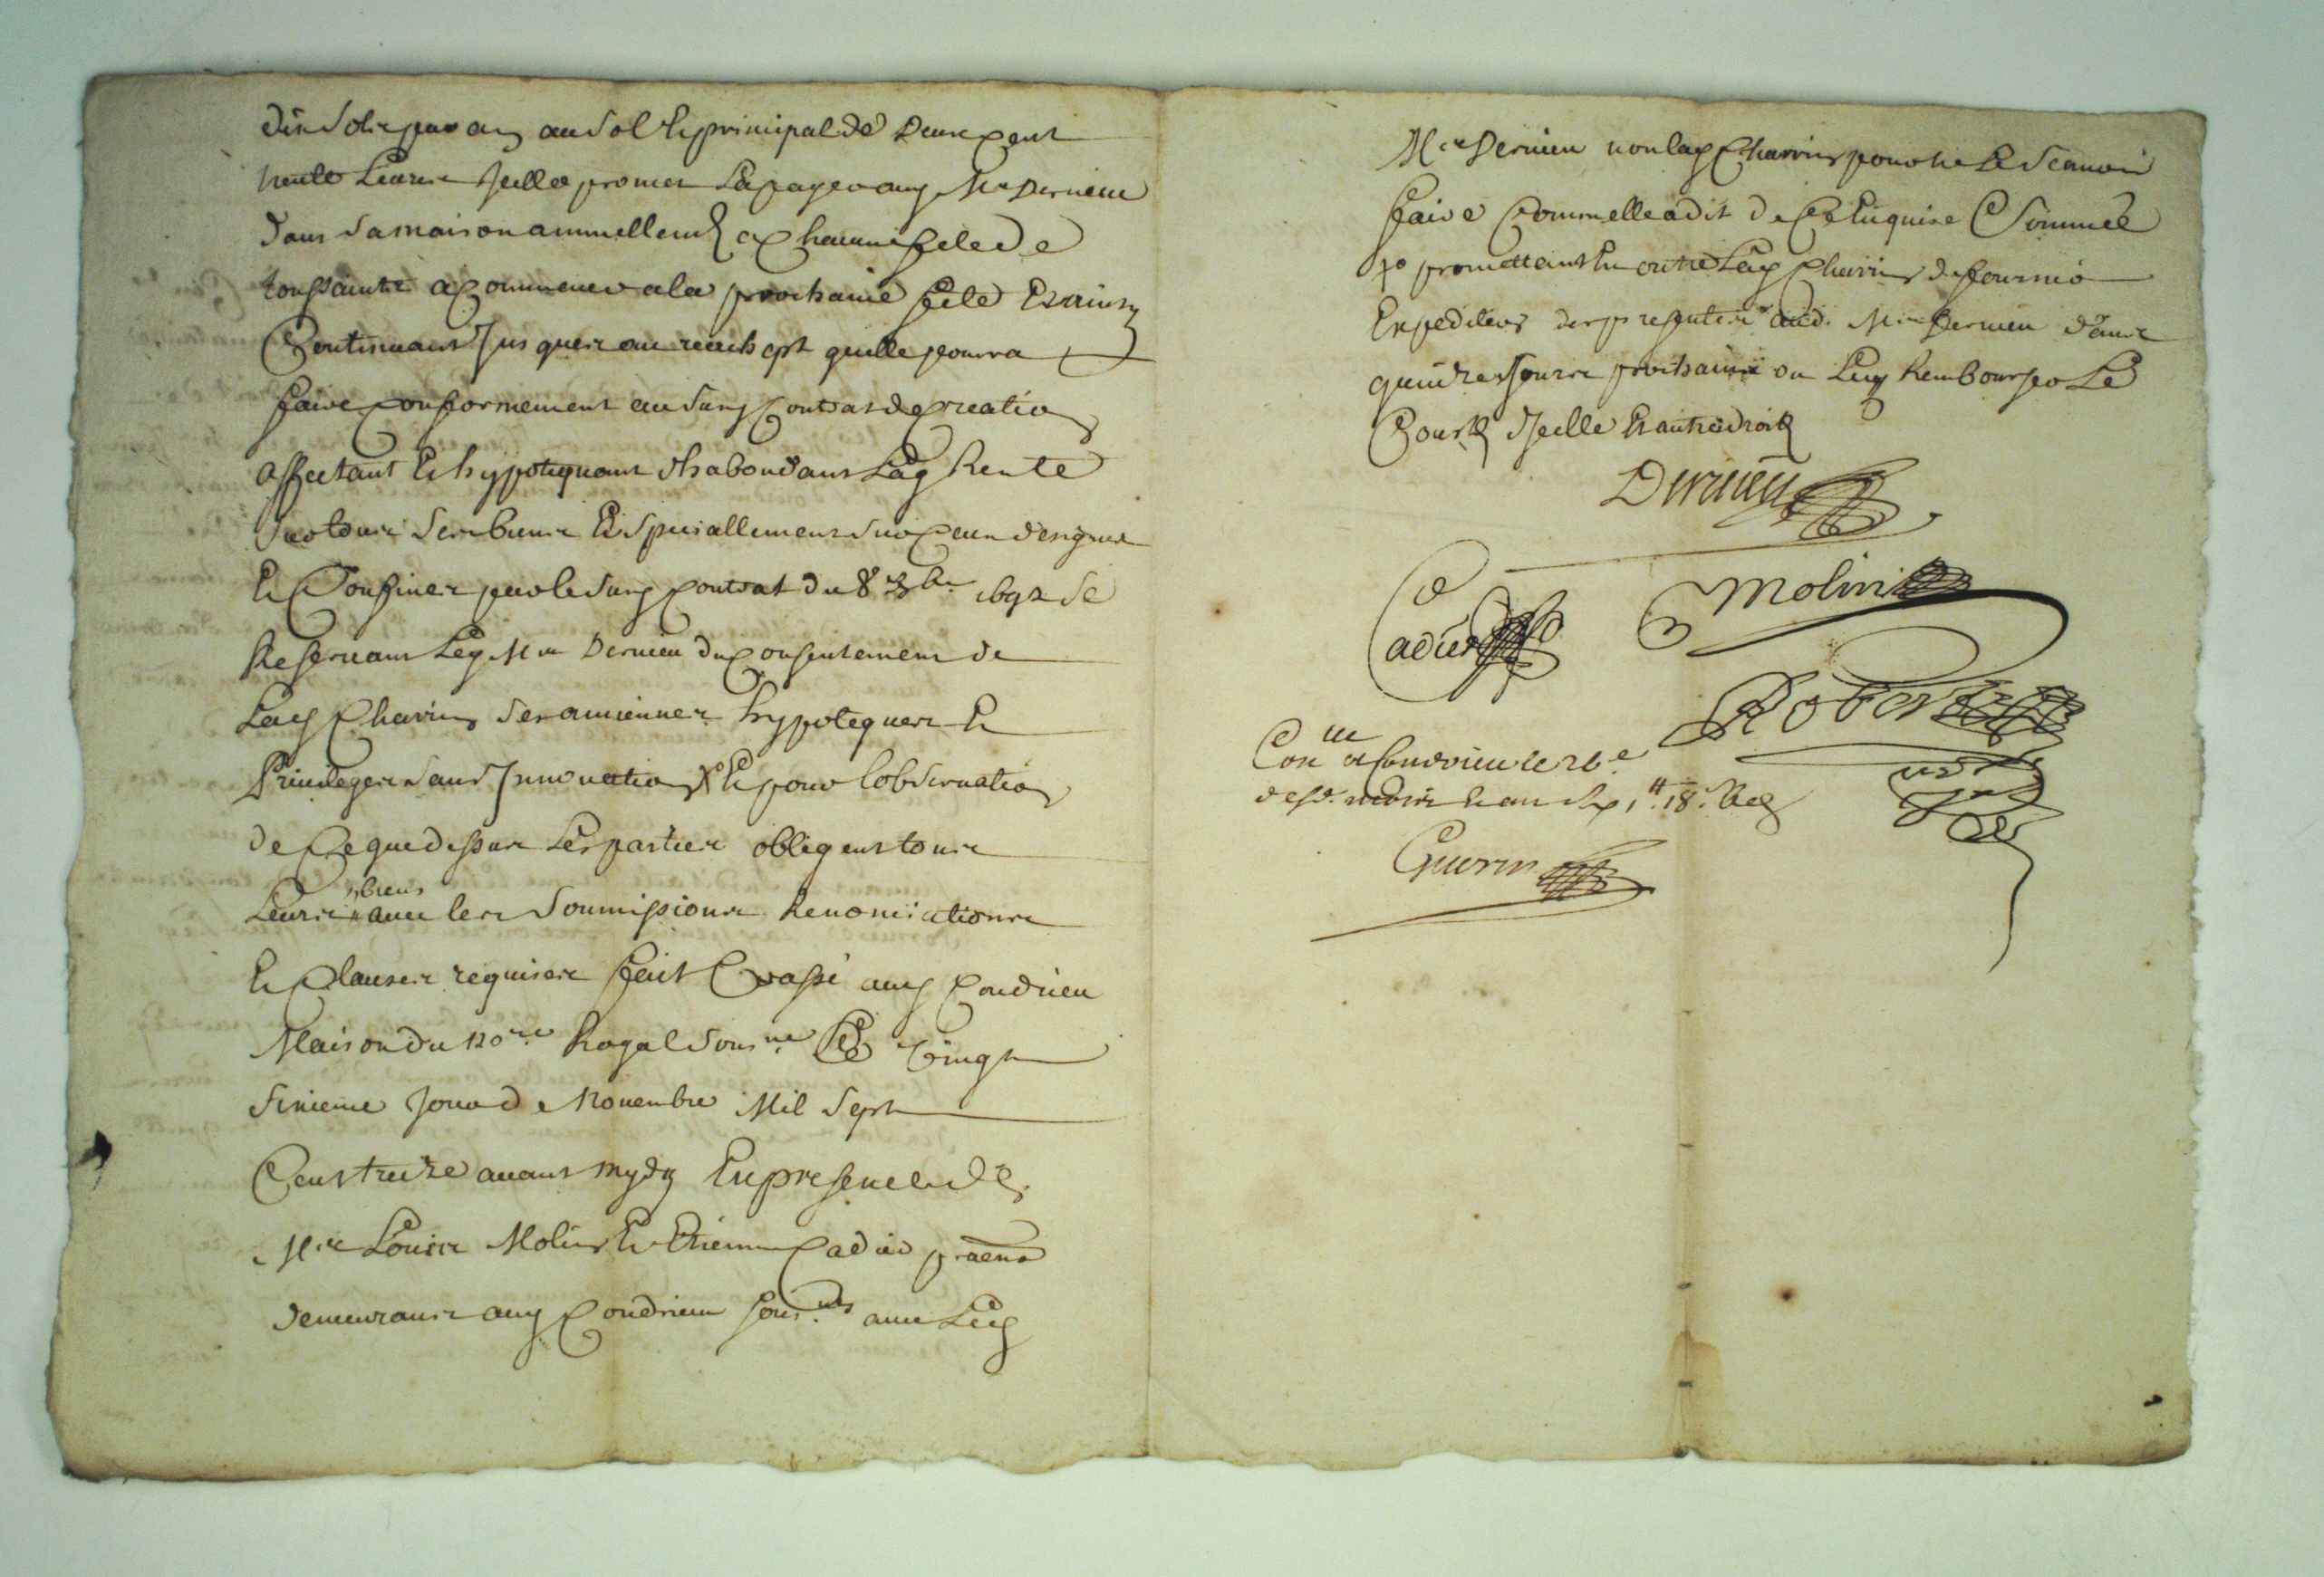 dix sols par an au sol le principal de Deux cent
trente Livres Icelle promet la payer aud. Mre Dervieu
dans sa maison annuellemt a chacune fete de
toussaints a Commencer a la prochaine fete Et ainsy
Continuant Jusques au rachept quelle pourra
faire conformement au susd Contrat de creation
affectant Et hypotequant Lad Rente
sur tous ses biens Et speciallement sur ceux designés
Et Confinés par le susd contrat du 8 xbre 1692 Se
Reservant Led Mre Dervieu du consentement de
Lad Charvin ses anciennes hypoteques Et
Privileges sans Innovation Et pour lobservation
de Ce que dessus Les parties obligent tous
Leurs biens avec les Soumissions Renonciations
Et Clauses requises fait Et passé aud Condrieu
Maison du nore Royal sousné Le Vingt
sixieme Jour de Novembre Mil Sept
Cent treize avant mydy En presence de
Mre Louis Molin Et Etienne Cadier
demeurants aud Condrieu sousnés avec Led
Mre Dervieu non lad Charvin pour ne le scavoir
faire Comme elle a dit de Ce Enquise Et Sommée
promettant En outre Lad Charvin de fournir
Expedition des presentes aud. Mre Dervieu dans
quinze Jours prochains ou Luy Rembourser Le
Coust dIcelle Et autres droits
Dervieu
Cadier
Molin
Robert
nore
Conlle a Condrieu le 26e
desd. mois Et an
Guerin